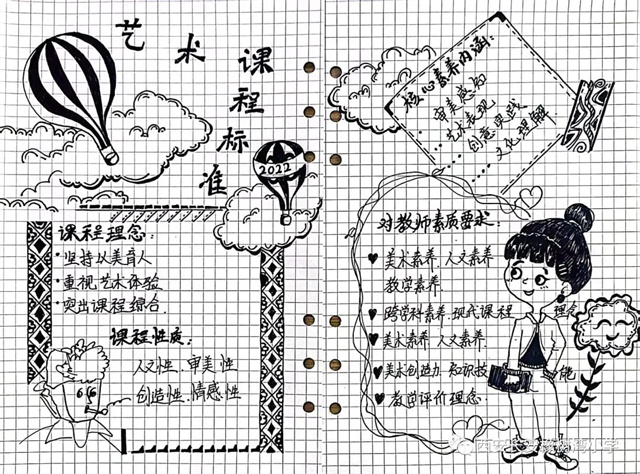 艺术课程标准
2022
课程理念:
·坚持以美育人
·重视艺术体验
·突出课程综合.
课程性质:
人文性.审美性
创造性.情感性
核心素养内涵:
审美感知
艺术表现
创意实践
文化理解
对教师素质要求:
美术素养.人文素养.
教学素养.
跨学科素养.现代课程理念
美术素养.人文素养.
美术创造力.知识技能
教学评价理念.